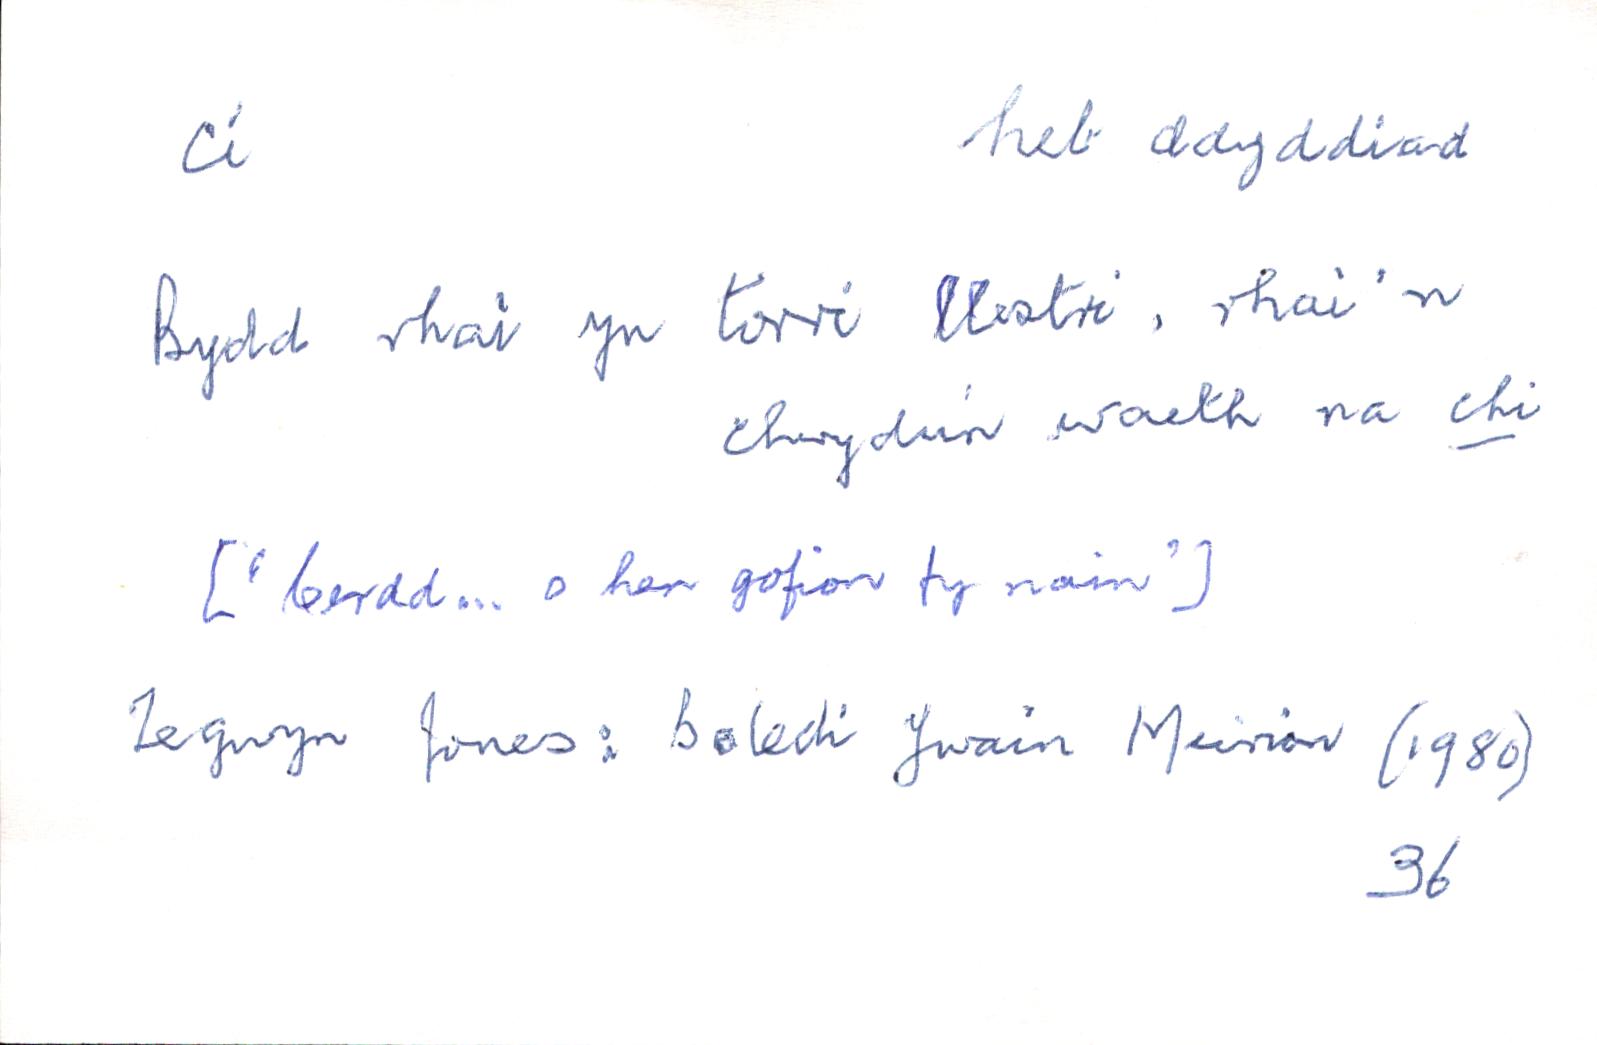 ci heb ddyddiad
Bydd rhai yn torri llestri, rhai'n
chwydu'n waeth na chi
['cerdd... o hen gofion ty nain']
Tegwyn Jones: Baledi Ywain Meirion (1980)
36